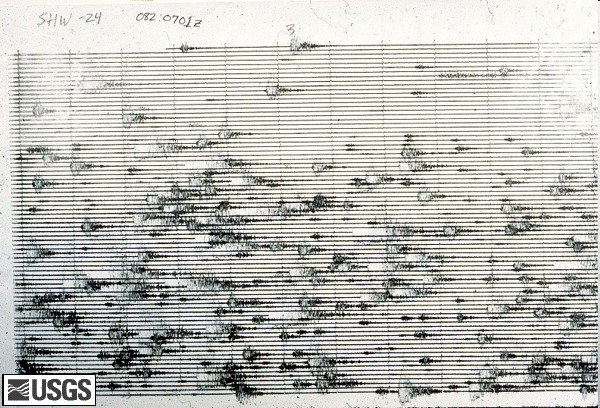 SHW -24 082:0701Z
3
USGS